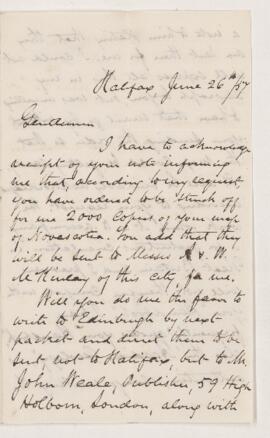 Halifax June 26th/57
Gentlemen
I have to acknowledge
receipt of your note informing
me that, according to my request
you have ordered to be struck off
for me 2000 Copies of your map
of Novascotia. You add that they
will be sent to Messrs A. & W.
McKinlay of this city, for me.
Will you do me the favor to
write to Edinburgh by next
packet and direct them to be
sent, not to Halifax, but to Mr.
John Weale, Publisher, 59 High
Holborn, London, along with